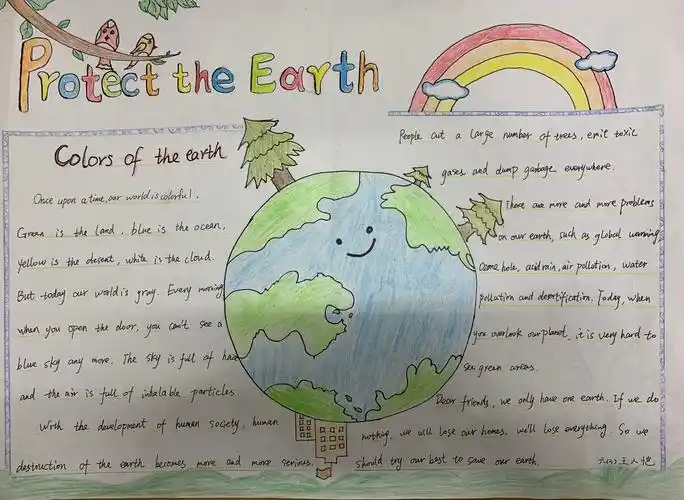 Protect the Earth
Colors of the earth
Once upon a time, our world is colorful.
Green is the land, blue is the ocean,
yellow is the desert, white is the cloud.
But today our world is gray. Every morning
when you open the door, you can't see a
blue sky any more. The sky is full of haze
and the air is full of inhalable particles.
With the development of human society, human
destruction of the earth becomes more and more serious.
People cut a large number of trees, emit toxic
gases and dump garbage everywhere.
There are more and more problems
on our earth, such as global warming,
Ozone hole, acid rain, air pollution, water
pollution and desertification. Today, when
you overlook our planet, it is very hard to
see green areas.
Dear friends, we only have one earth. If we do
nothing, we will lose our homes. we'll lose everything. So we
should try our best to save our earth.